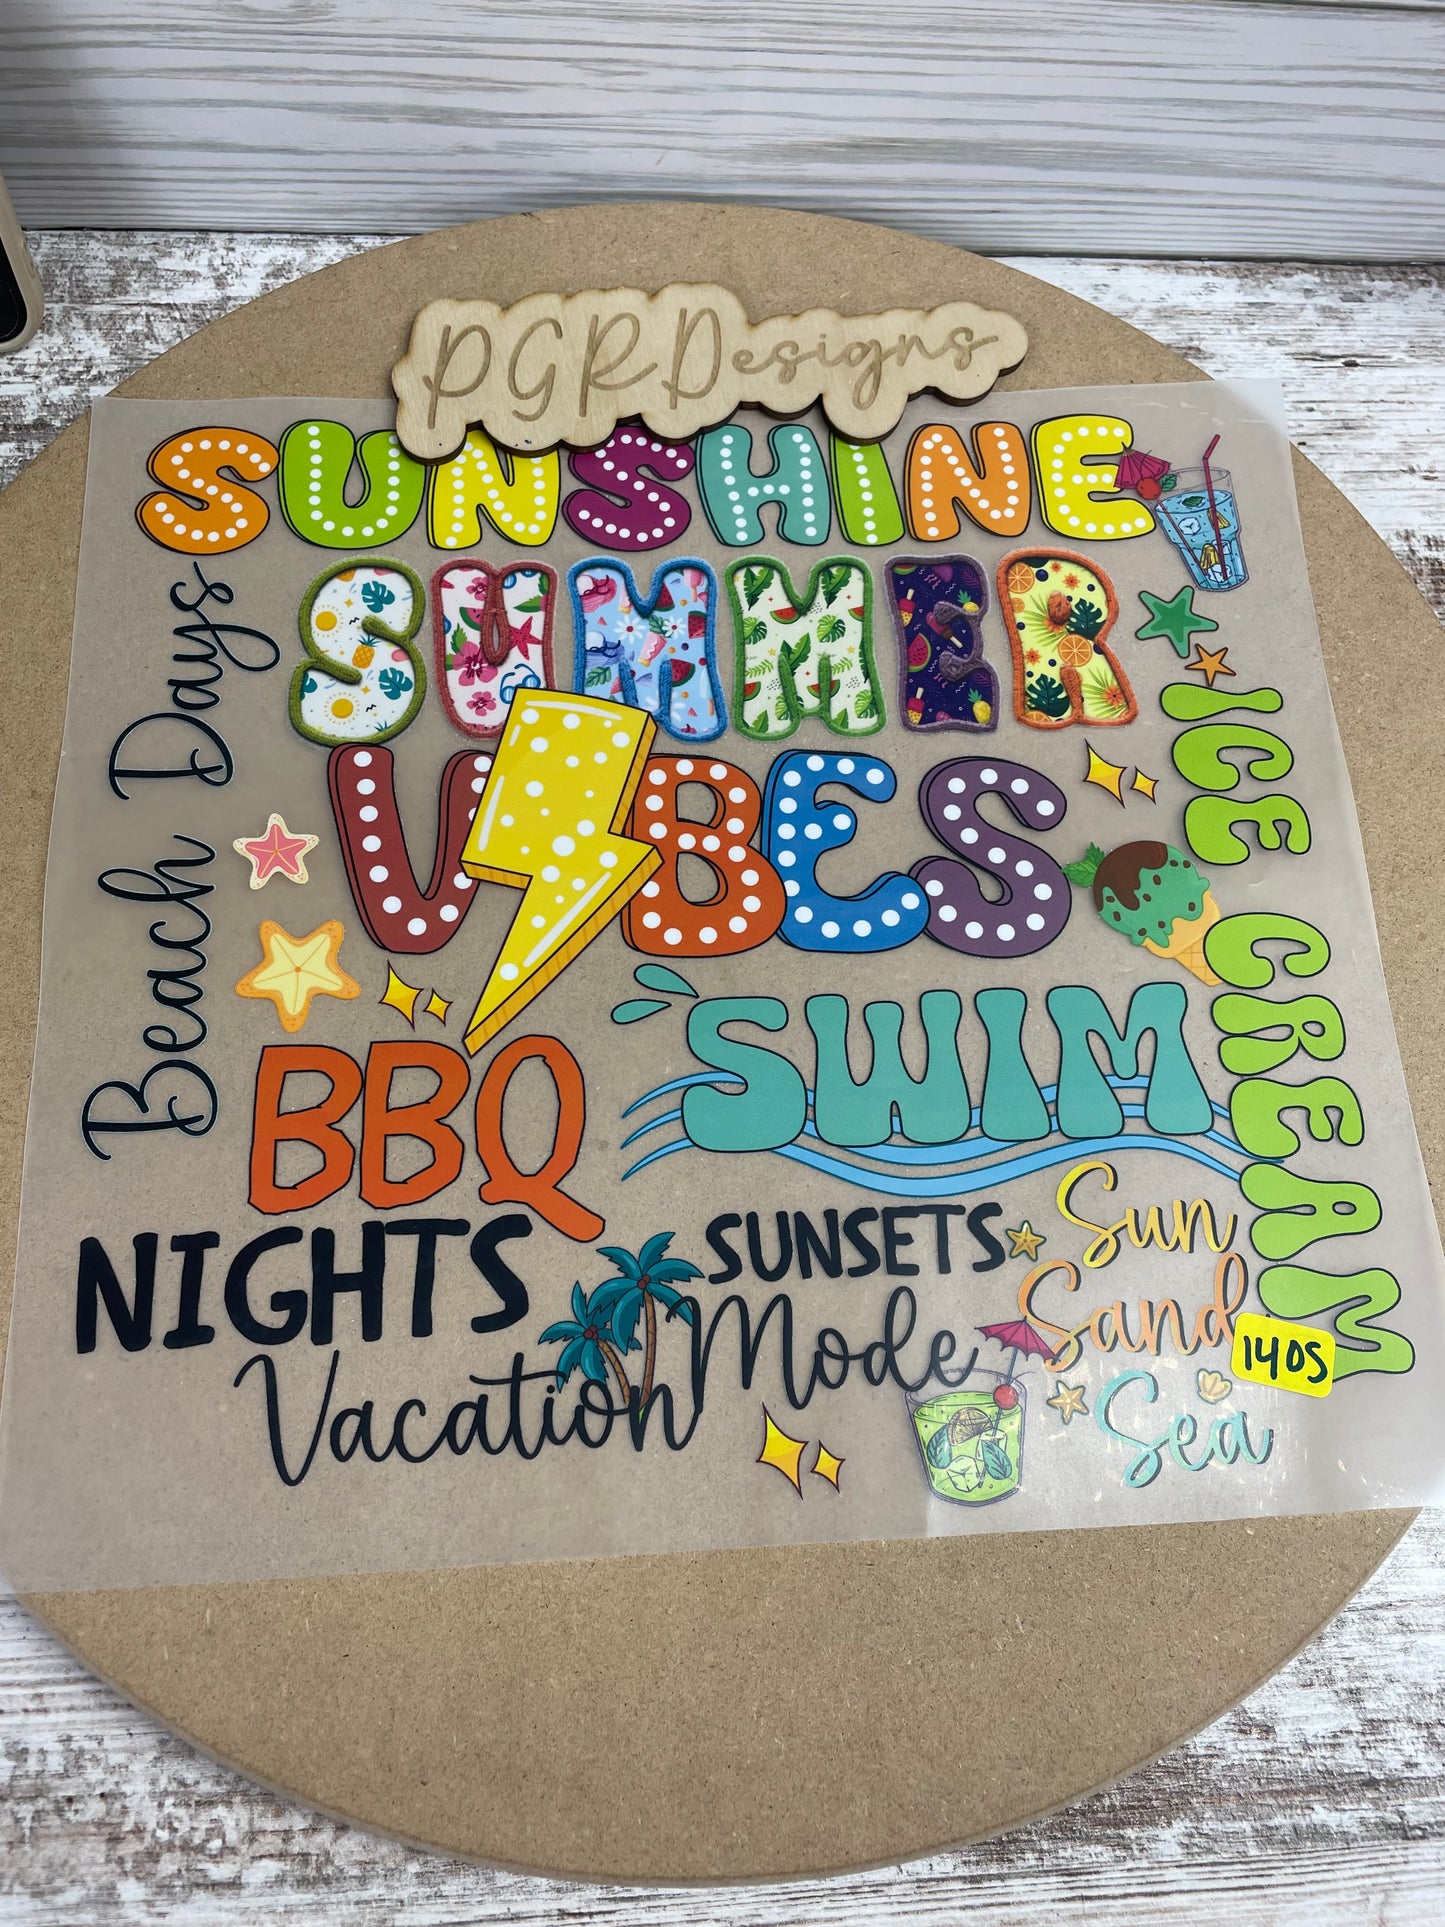 PGRDesigns
SUNSHINE
SUMMER
VIBES
Beach Days
ICE CREAM
BBQ
SWIM
NIGHTS
SUNSETS
Vacation Mode
Sun
Sand
Sea
140S